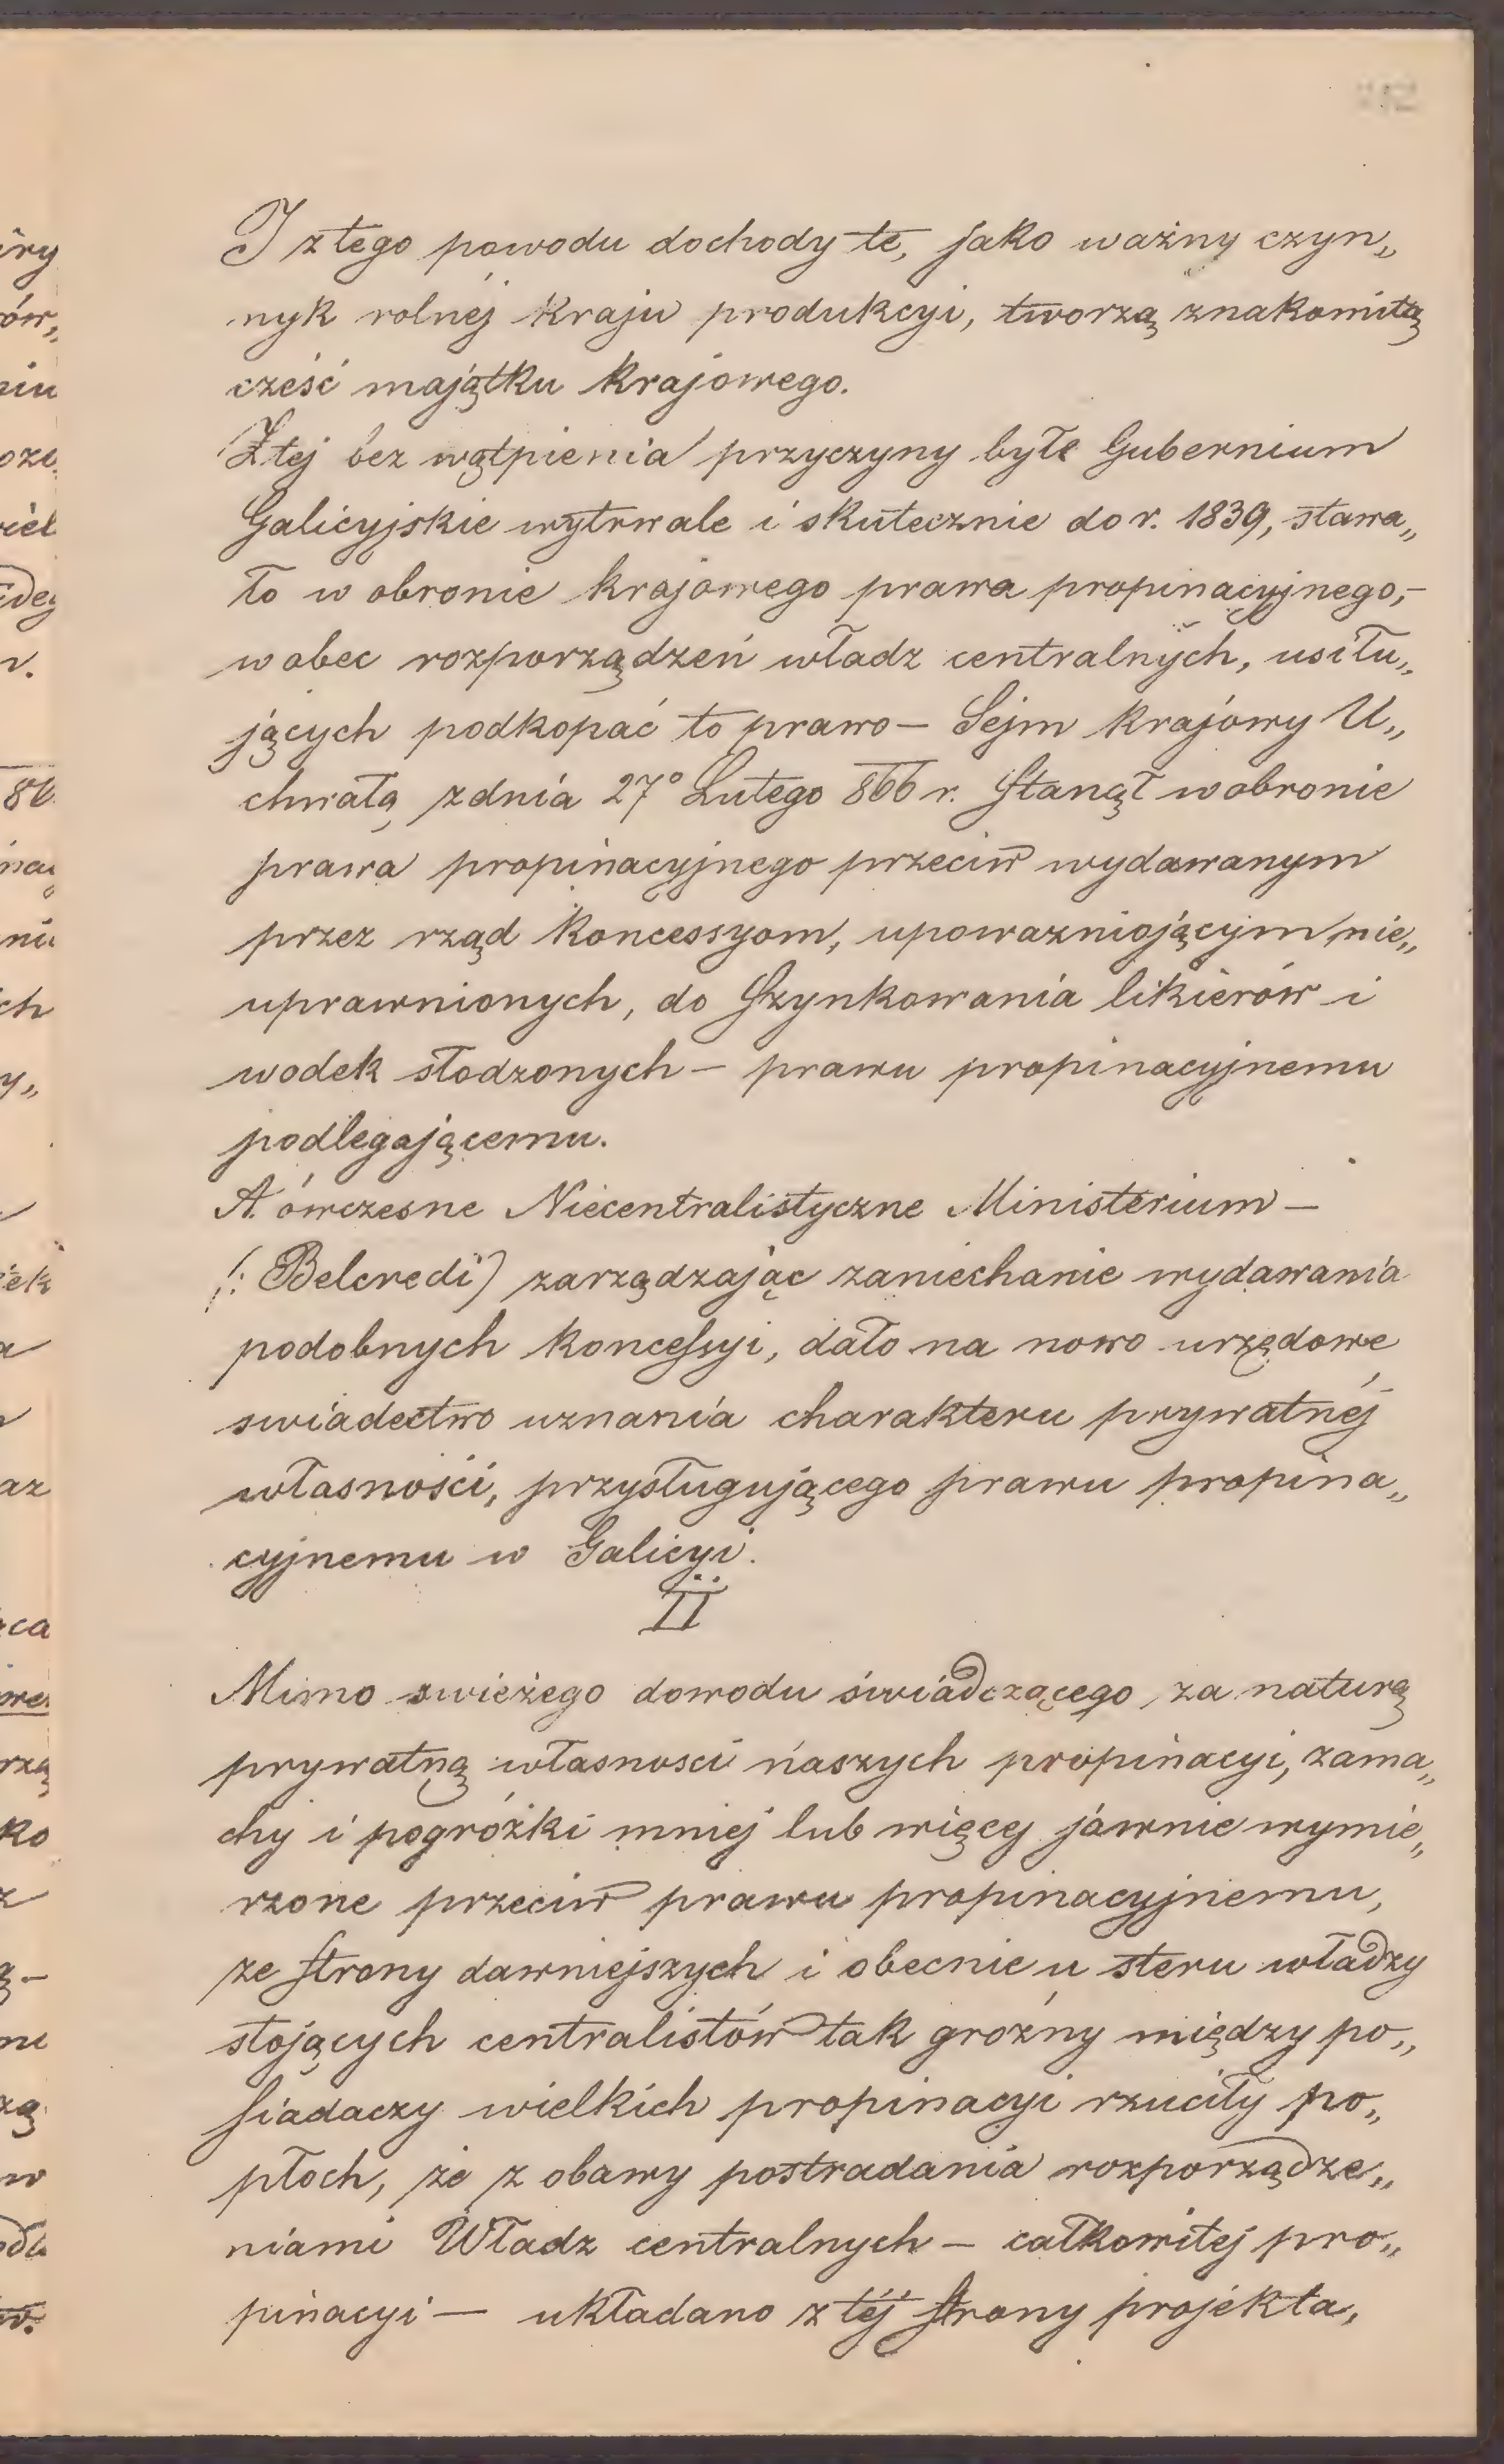 I z tego powodu dochody te, jako ważny czyn„
nyk rolnéj kraju produkcyi, tworzą znakomitą
cześć majątku krajowego.
Z tej bez wątpienia przyczyny byłe Gubernium
Galicyjskie wytrwale i skutecznie do r. 1839, stawa„
ło w obronie krajowego prawa propinacyjnego,–
wobec rozporządzeń władz centralnych, usiłu„
jących podkopać to prawo – Sejm krajowy U„
chwałą z dnia 27° Lutego 866 r. stanął w obronie
prawa propinacyjnego przeciw wydawanym
przez rząd koncessyom, upoważniającym nie„
uprawnionych, do szynkowania likierów i
wodek słodzonych – prawu propinacyjnemu
podlegającemu.
A. ówczesne Niecentralistyczne Ministerium –
/: Belcredi) zarządzając zaniechanie wydawania
podobnych koncessyi, dało na nowo urzędowe
swiadectwo uznania charakteru prywatnéj
własności, przysługującego prawu propina„
cyjnemu w Galicyi.
II
Mimo swieżego dowodu świadczącego za naturą
prywatną własnosci naszych propinacyi, zama„
chy i pogróżki mniej lub więcej jawnie wymie„
rzone przeciw prawu propinacyjnemu,
ze strony dawniejszych i obecnie u steru władzy
stojących centralistów tak groźny między po„
siadaczy wielkich propinacyi rzuciły po„
płoch, że z obawy postradania rozporządze„
niami Władz centralnych – całkowitej pro„
pinacyi — układano z téj strony projekta,